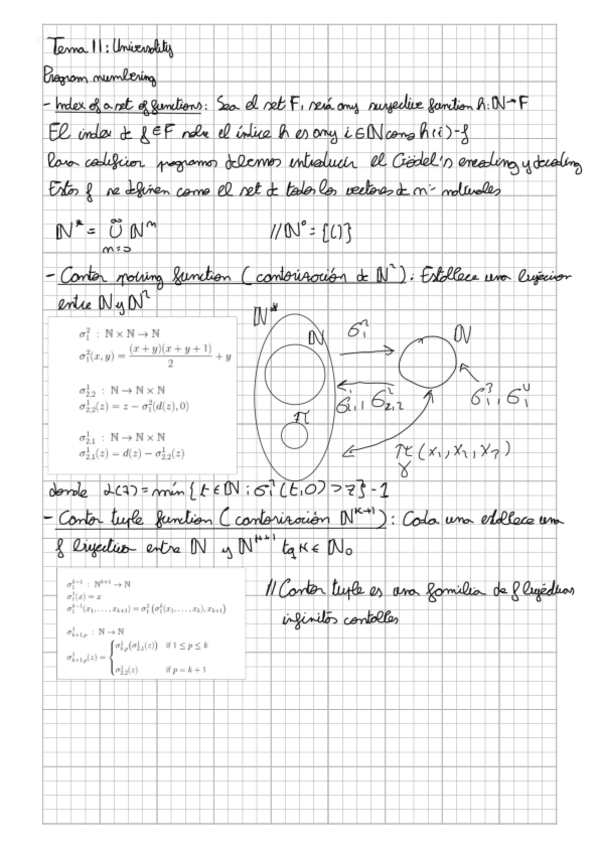 Tema 11: Universality
Program numbering
- Index of a set of functions: Sea el set F, será any surjective function h: ℕ→F
El index de f ∈ F sobre el índice h es any i ∈ ℕ con h(i)=f
Para codificar programas debemos introducir el Gödel's encoding y decoding
Estos f se definen como el set de todos los vectores de nº naturales
ℕ* = ∞ ∪ m=0 ℕᵐ //ℕ⁰ = {()}
- Cantor pairing function (cantorización de ℕ²): Establece una biyeccion
entre ℕ y ℕ²
σ²₁ : ℕ × ℕ → ℕ
σ²₁(x, y) = (x + y)(x + y + 1) / 2 + y
σ¹₂,₂ : ℕ → ℕ × ℕ
σ¹₂,₂(z) = z − σ²₁(d(z), 0)
σ¹₂,₁ : ℕ → ℕ × ℕ
σ¹₂,₁(z) = d(z) − σ¹₂,₂(z)
ℕ*
ℕ
ℕ
π
γ
donde d(z) = mín {t ∈ ℕ : σ²₁(t,0) > z} - 1
- Cantor tuple function (cantorización ℕᵏ⁺¹): Cada una establece una
f biyectiva entre ℕ y ℕᵏ⁺¹ tq k ∈ ℕ₀
: ℕᵏ⁺¹ → ℕ
(x) = x
: ℕ → ℕ
if 1 ≤ p ≤ k
if p = k + 1
//Cantor tuple es una familia de f biyectivas
infinitas contables